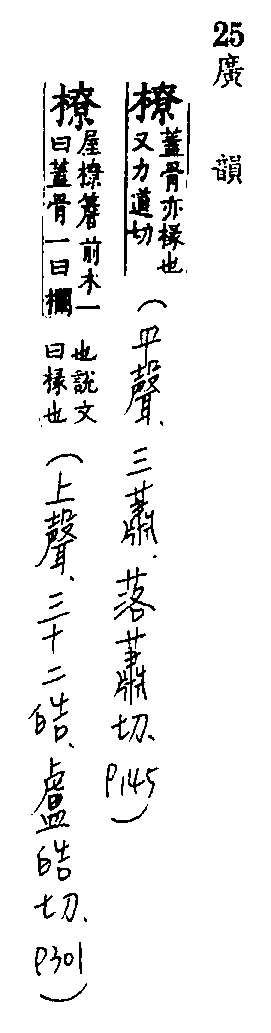 25 廣韻
橑 蓋骨亦椽也又力道切 (平聲、三蕭、落蕭切、P145)
橑 屋橑簷前木一曰蓋骨一曰欄也說文曰椽也 (上聲、三十二皓、盧皓切、P301)